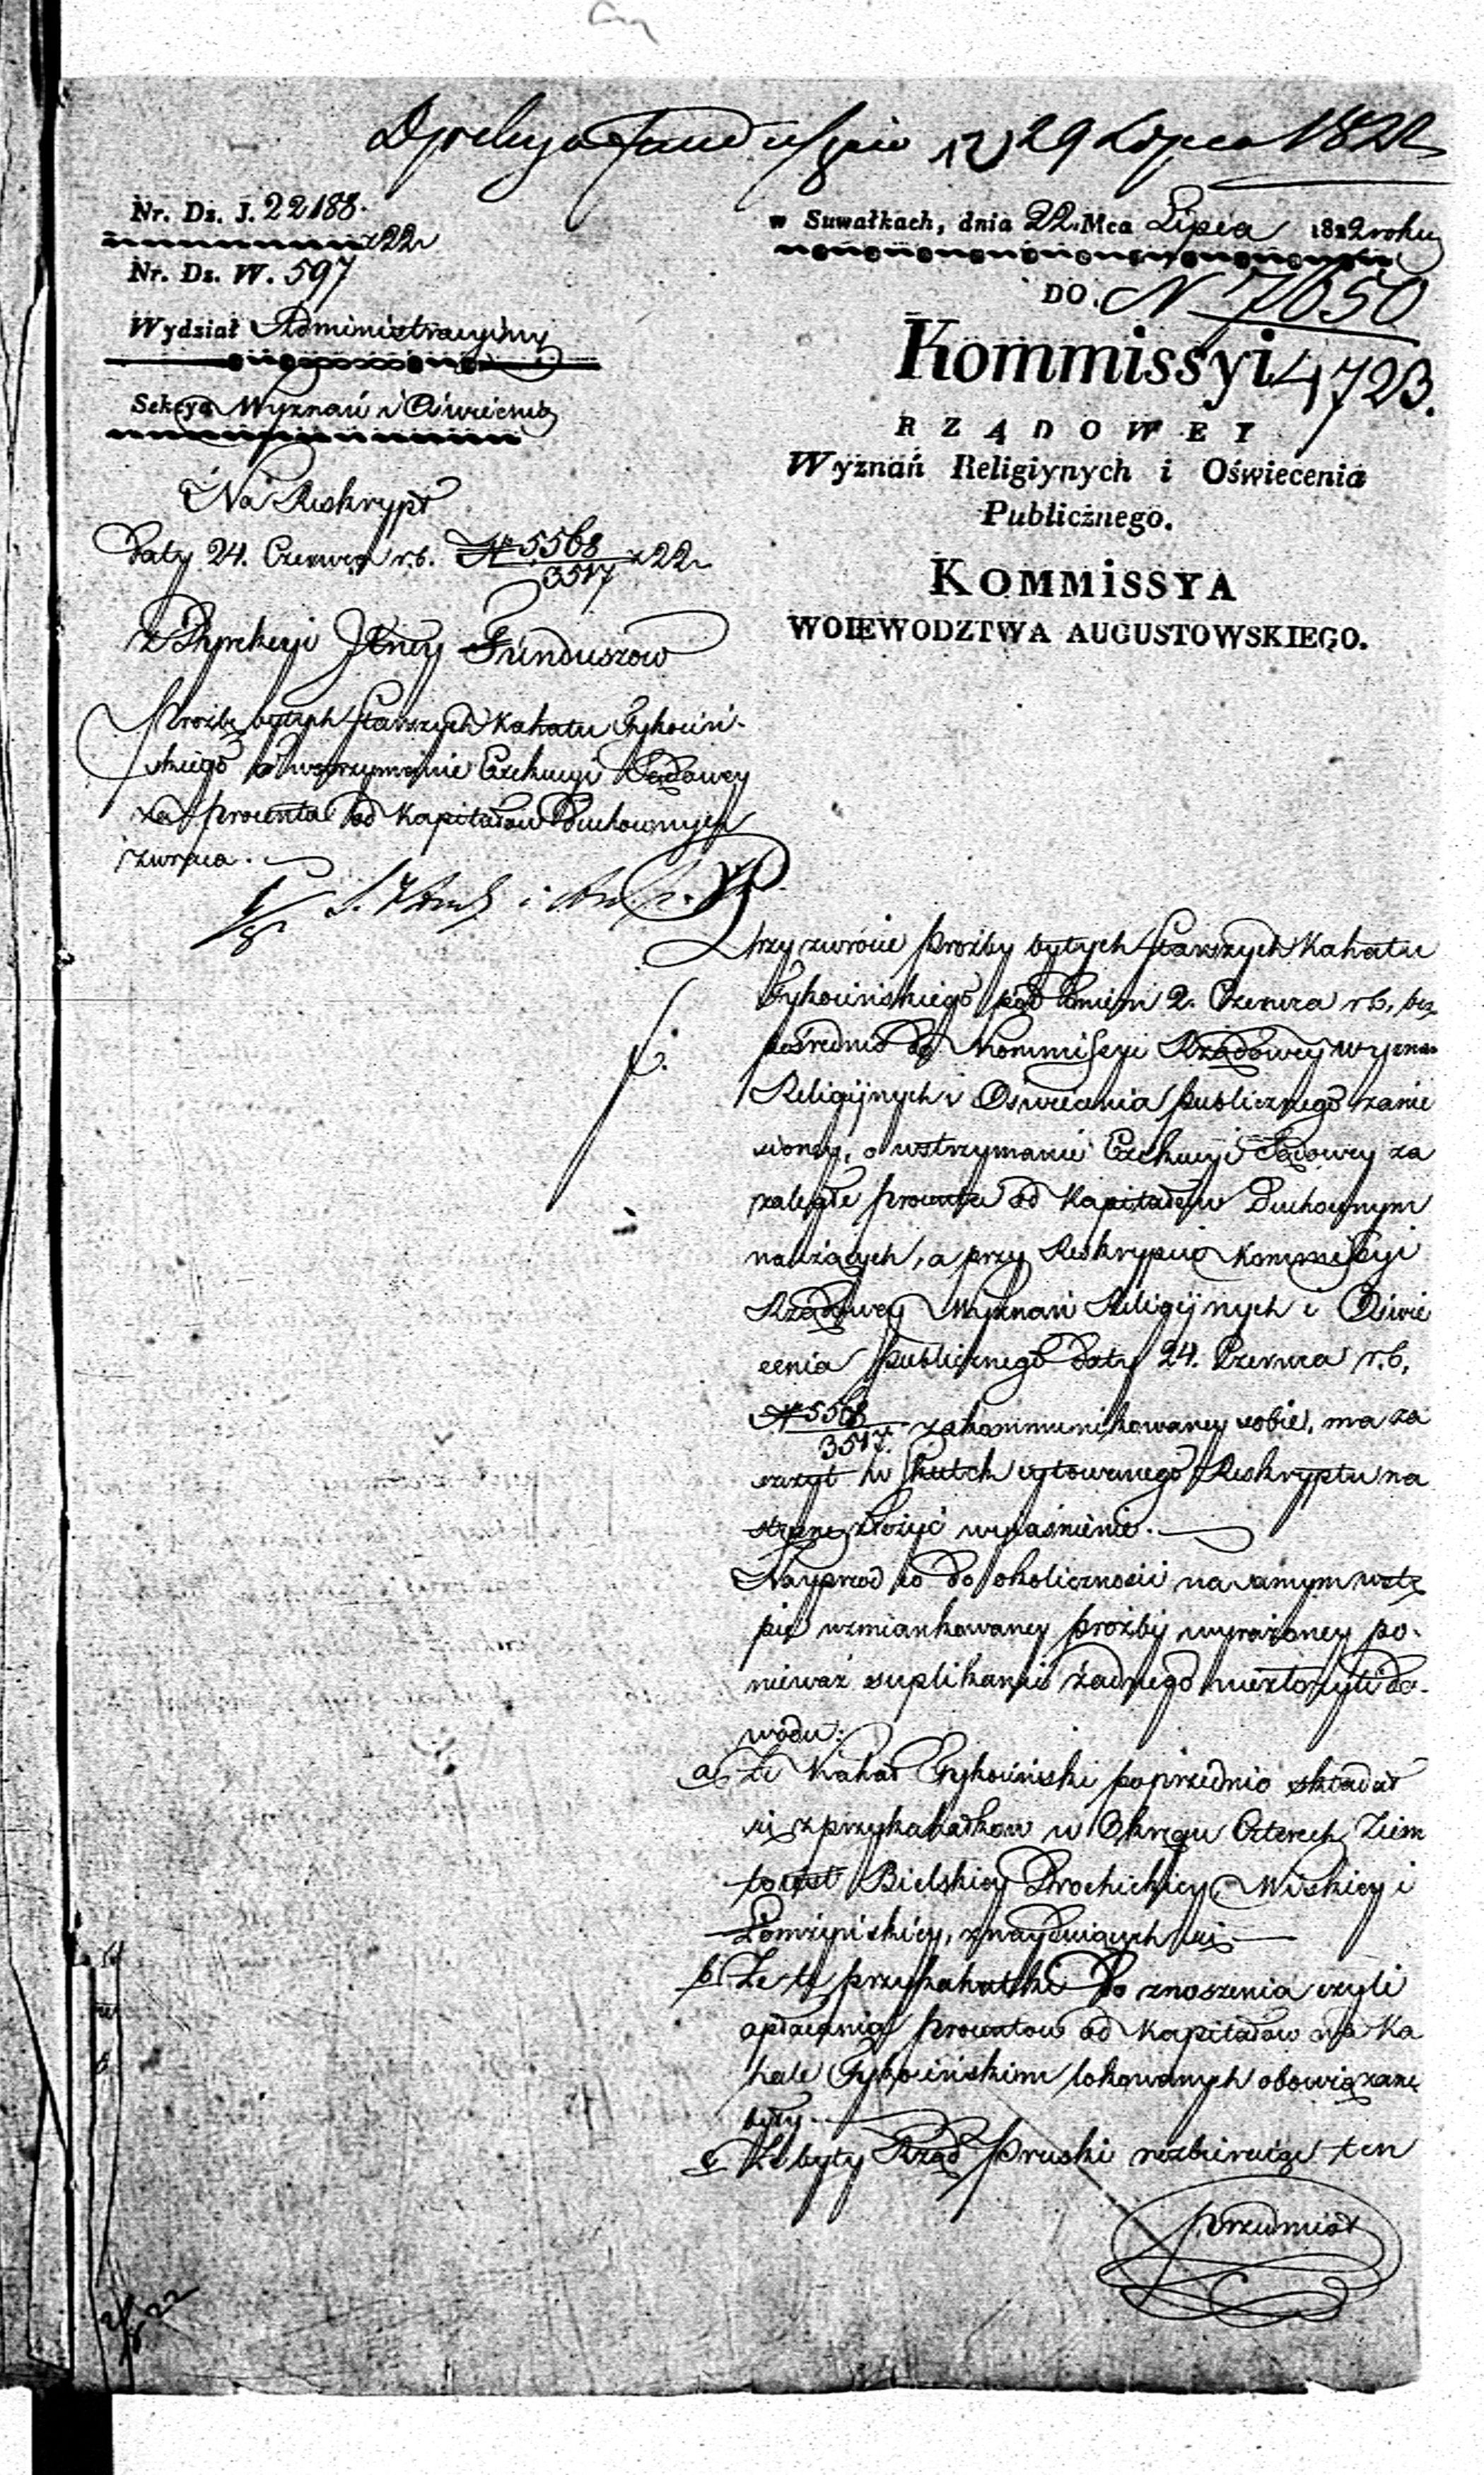 Dyrekcya Funduszow 29 Lipca 1822
Nr. Ds. J. 22188.
822
Nr. Ds. W. 597
Wydział Administracyiny
Sekcya Wyznań i Oświecenia
w Suwałkach, dnia 22. Mca Lipca 1822 roku
DO. N 7050
4723.
Kommissyi
RZĄDOWEY
Wyznań Religiynych i Oświecenia
Publicżnego.
KOMMISSYA
WOIEWODZTWA AUGUSTOWSKIEGO.
Na Reskrypt
Daty 24. Czerwca r.b. N 5568/3517 822
z Dyrekcyi Funduszow
Prożbę byłych Starszych Kahału Tykociń-
skiego o wstrzymanie Exekucyi Sądowey
za procenta od Kapitałow Duchownych
zwraca.
Przy zwrocie prożby byłych Starszych Kahału
Tykocińskiego pod dniem 2. Czerwca r.b. bez
pośrednio do Kommissyi Rządowey Wyznań
Religiynych i Oświecenia publicznego zanie
sioney, o wstrzymanie Exekucyi Sądowey za
zaległe procenta od Kapitałow Duchownym
należących, a przy Reskrypcie Kommissyi
Rządowey Wyznań Religiynych i Oświe
cenia publicznego daty 24. Czerwca r.b.
N 5568/3517. zakommunikowaney sobie, ma za
szczyt w skutek cytowanego Reskryptu na
stępne złożyć wyiaśnienie.
Nayprzod co do okoliczności na samym wstę
pie wzmiankowaney prożby wyrażoney po-
nieważ suplikanci żadnego niezłożyli do-
wodu:
a, że Kahał Tykociński poprzednio składał
się z przykahałkow w Okręgu Czterech Ziem
to iest Bielskiey Drohickiey, Wiskiey i
Łomżyńskiey, znayduiących się
b, Że te przykahałki do znoszenia czyli
opłacania procentow od Kapitałow na Ka
hale Tykocińskim lokowanych obowiązane
były.
c, Że były Rząd Pruski rozbieraiąc ten
przedmiot